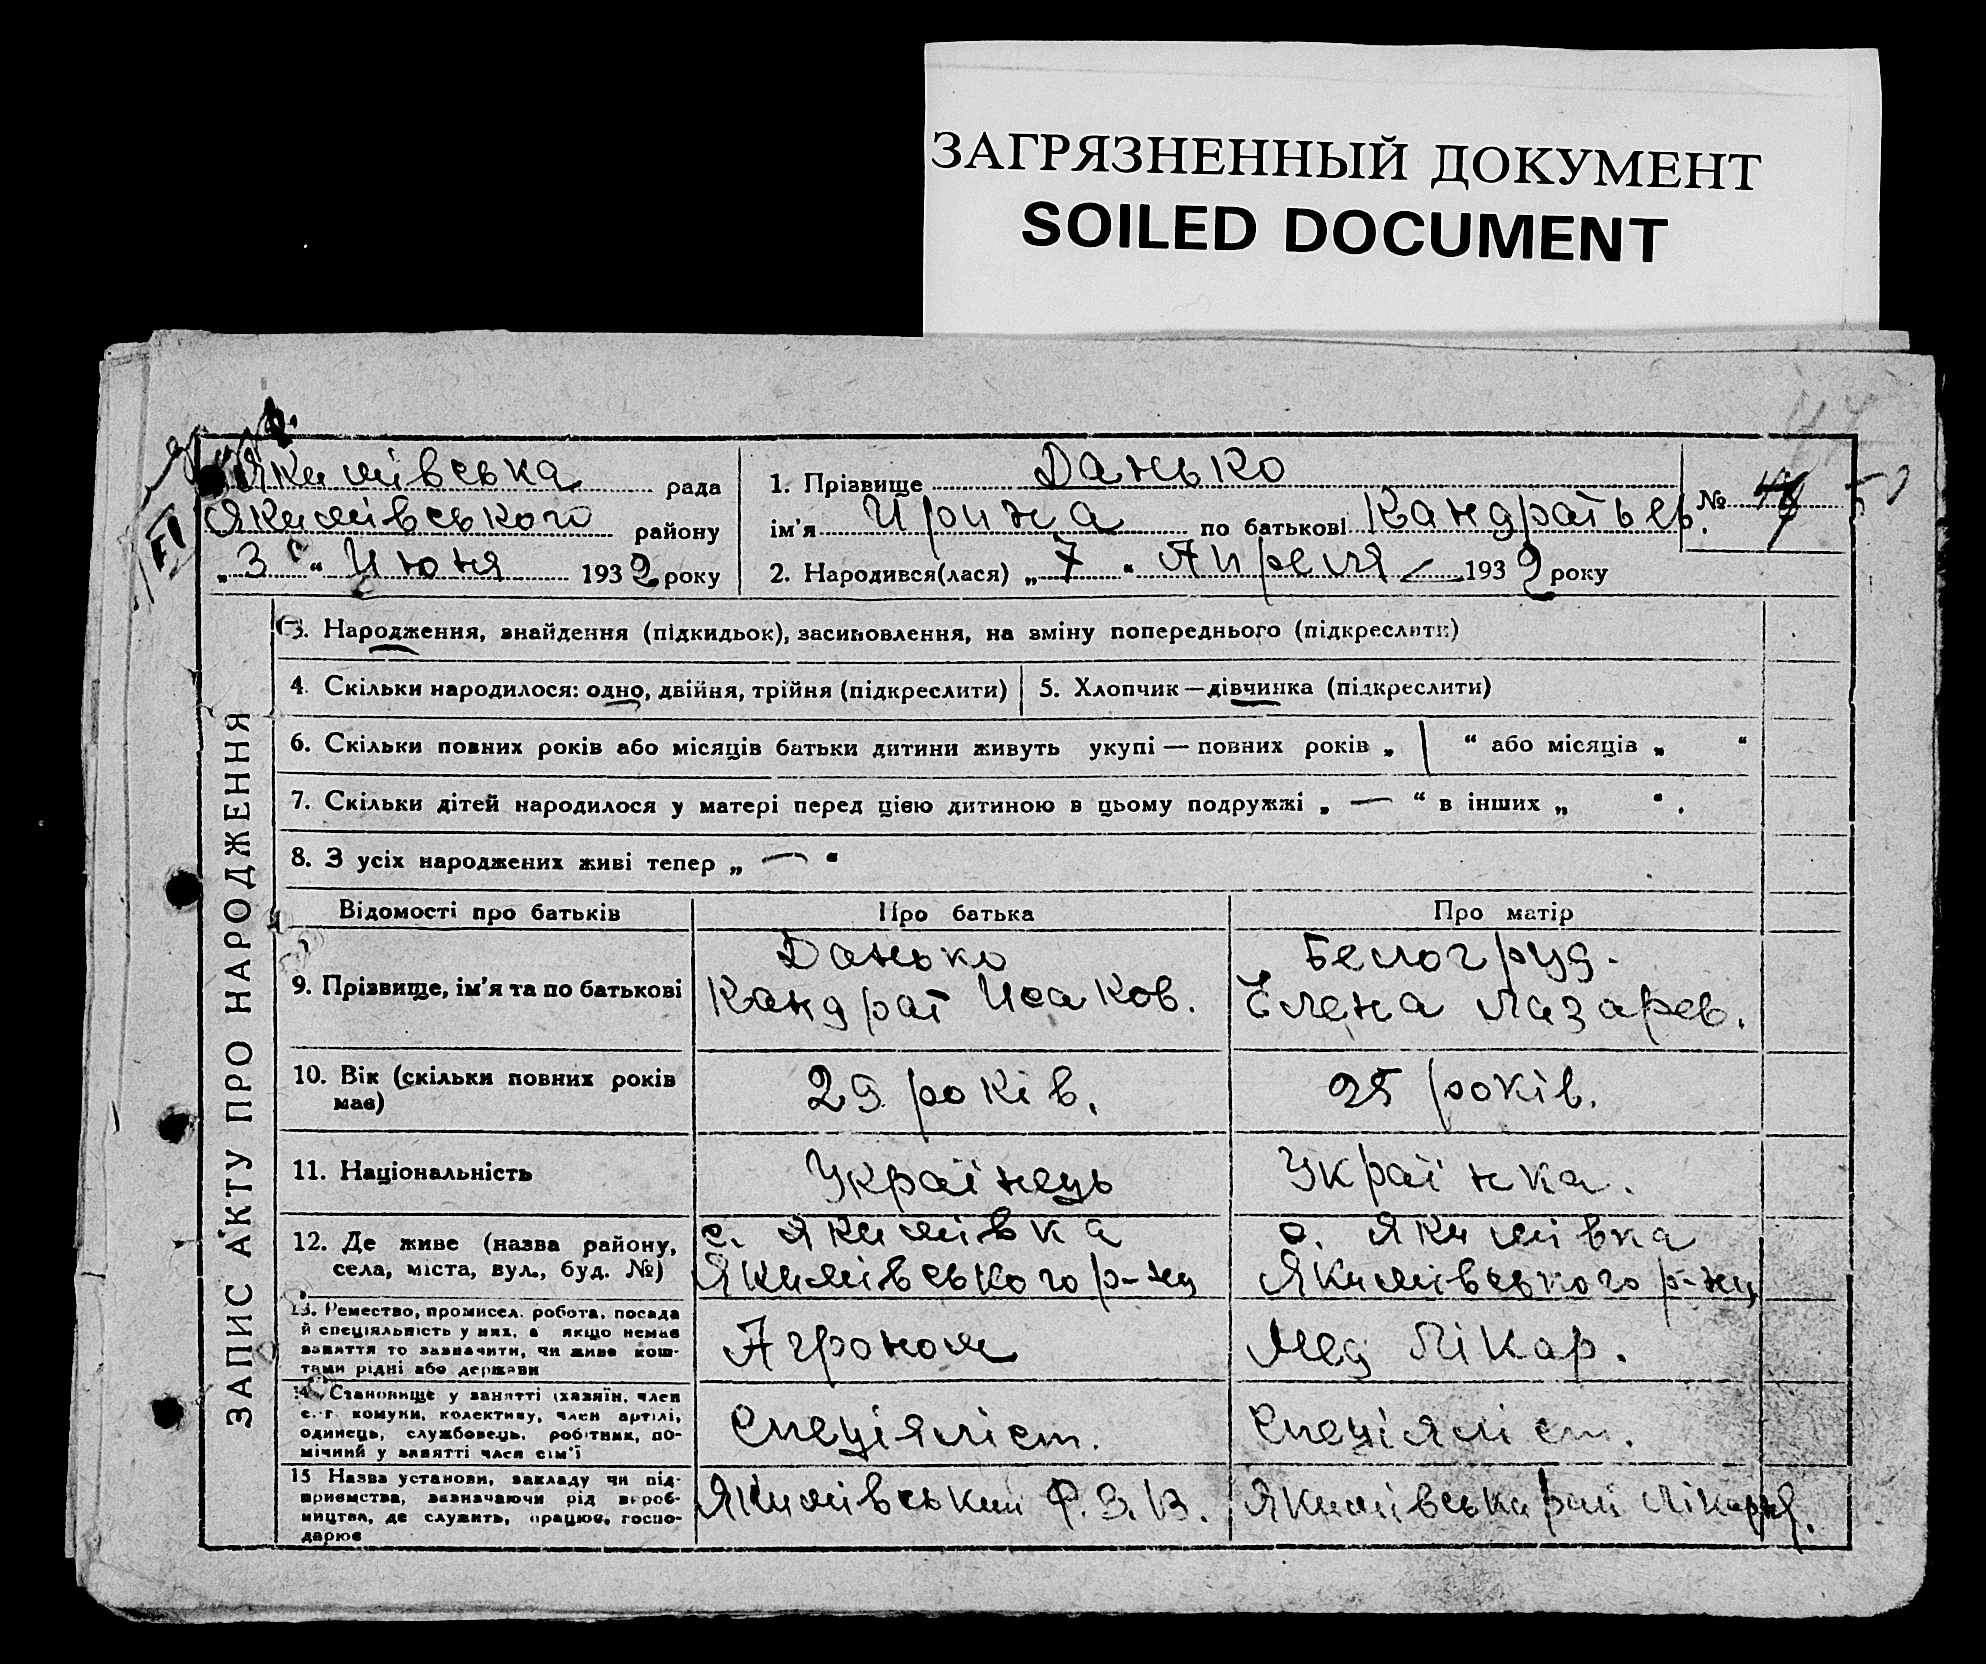 ЗАГРЯЗНЕННЫЙ ДОКУМЕНТ
SOILED DOCUMENT
Якимівська рада
Якимівського району
„3" Июня 1932 року
1. Прізвище Данько
ім'я Ирина по батькові Кандратьев.
2. Народився(лася) „7" Апреля 1932 року
№
50
ЗАПИС АКТУ ПРО НАРОДЖЕННЯ
3. Народження, знайдення (підкидьок), засиновлення, на зміну попереднього (підкреслити)
4. Скільки народилося: одно, двійня, трійня (підкреслити)
5. Хлопчик—дівчинка (підкреслити)
6. Скільки повних років або місяців батьки дитини живуть укупі — повних років „ 1 " або місяців „ "
7. Скільки дітей народилося у матері перед цією дитиною в цьому подружжі „ — " в інших „ ".
8. З усіх народжених живі тепер „ — "
Відомості про батьків Про батька Про матір
9. Прізвище, ім'я та по батькові
Данько
Кандрат Исаков.
Белогруд.
Елена Лазарев.
10. Вік (скільки повних років
має)
29 років.
25 років.
11. Національність
Українець
Українка.
12. Де живе (назва району,
села, міста, вул., буд. №)
с. Якимівка
Якимівського р-ну
с. Якимівка
Якимівського р-ну
13. Ремество, промисел, робота, посада
й спеціяльність у них, а якщо немає
заняття то зазначити, чи живе кош-
тами рідні або держави
Агроном
Мед Лікар.
14. Становище у занятті (хазяїн, член
с.-г. комуни, колективу, член артілі,
одинець, службовець, робітник, по-
мічний у занятті член сім'ї
Спеціяліст.
Спеціяліст.
15 Назва установи, закладу чи під-
приємства, зазначаючи рід вироб-
ництва, де служить, працює, госпо-
дарює
Якимівський
Якимівська рай